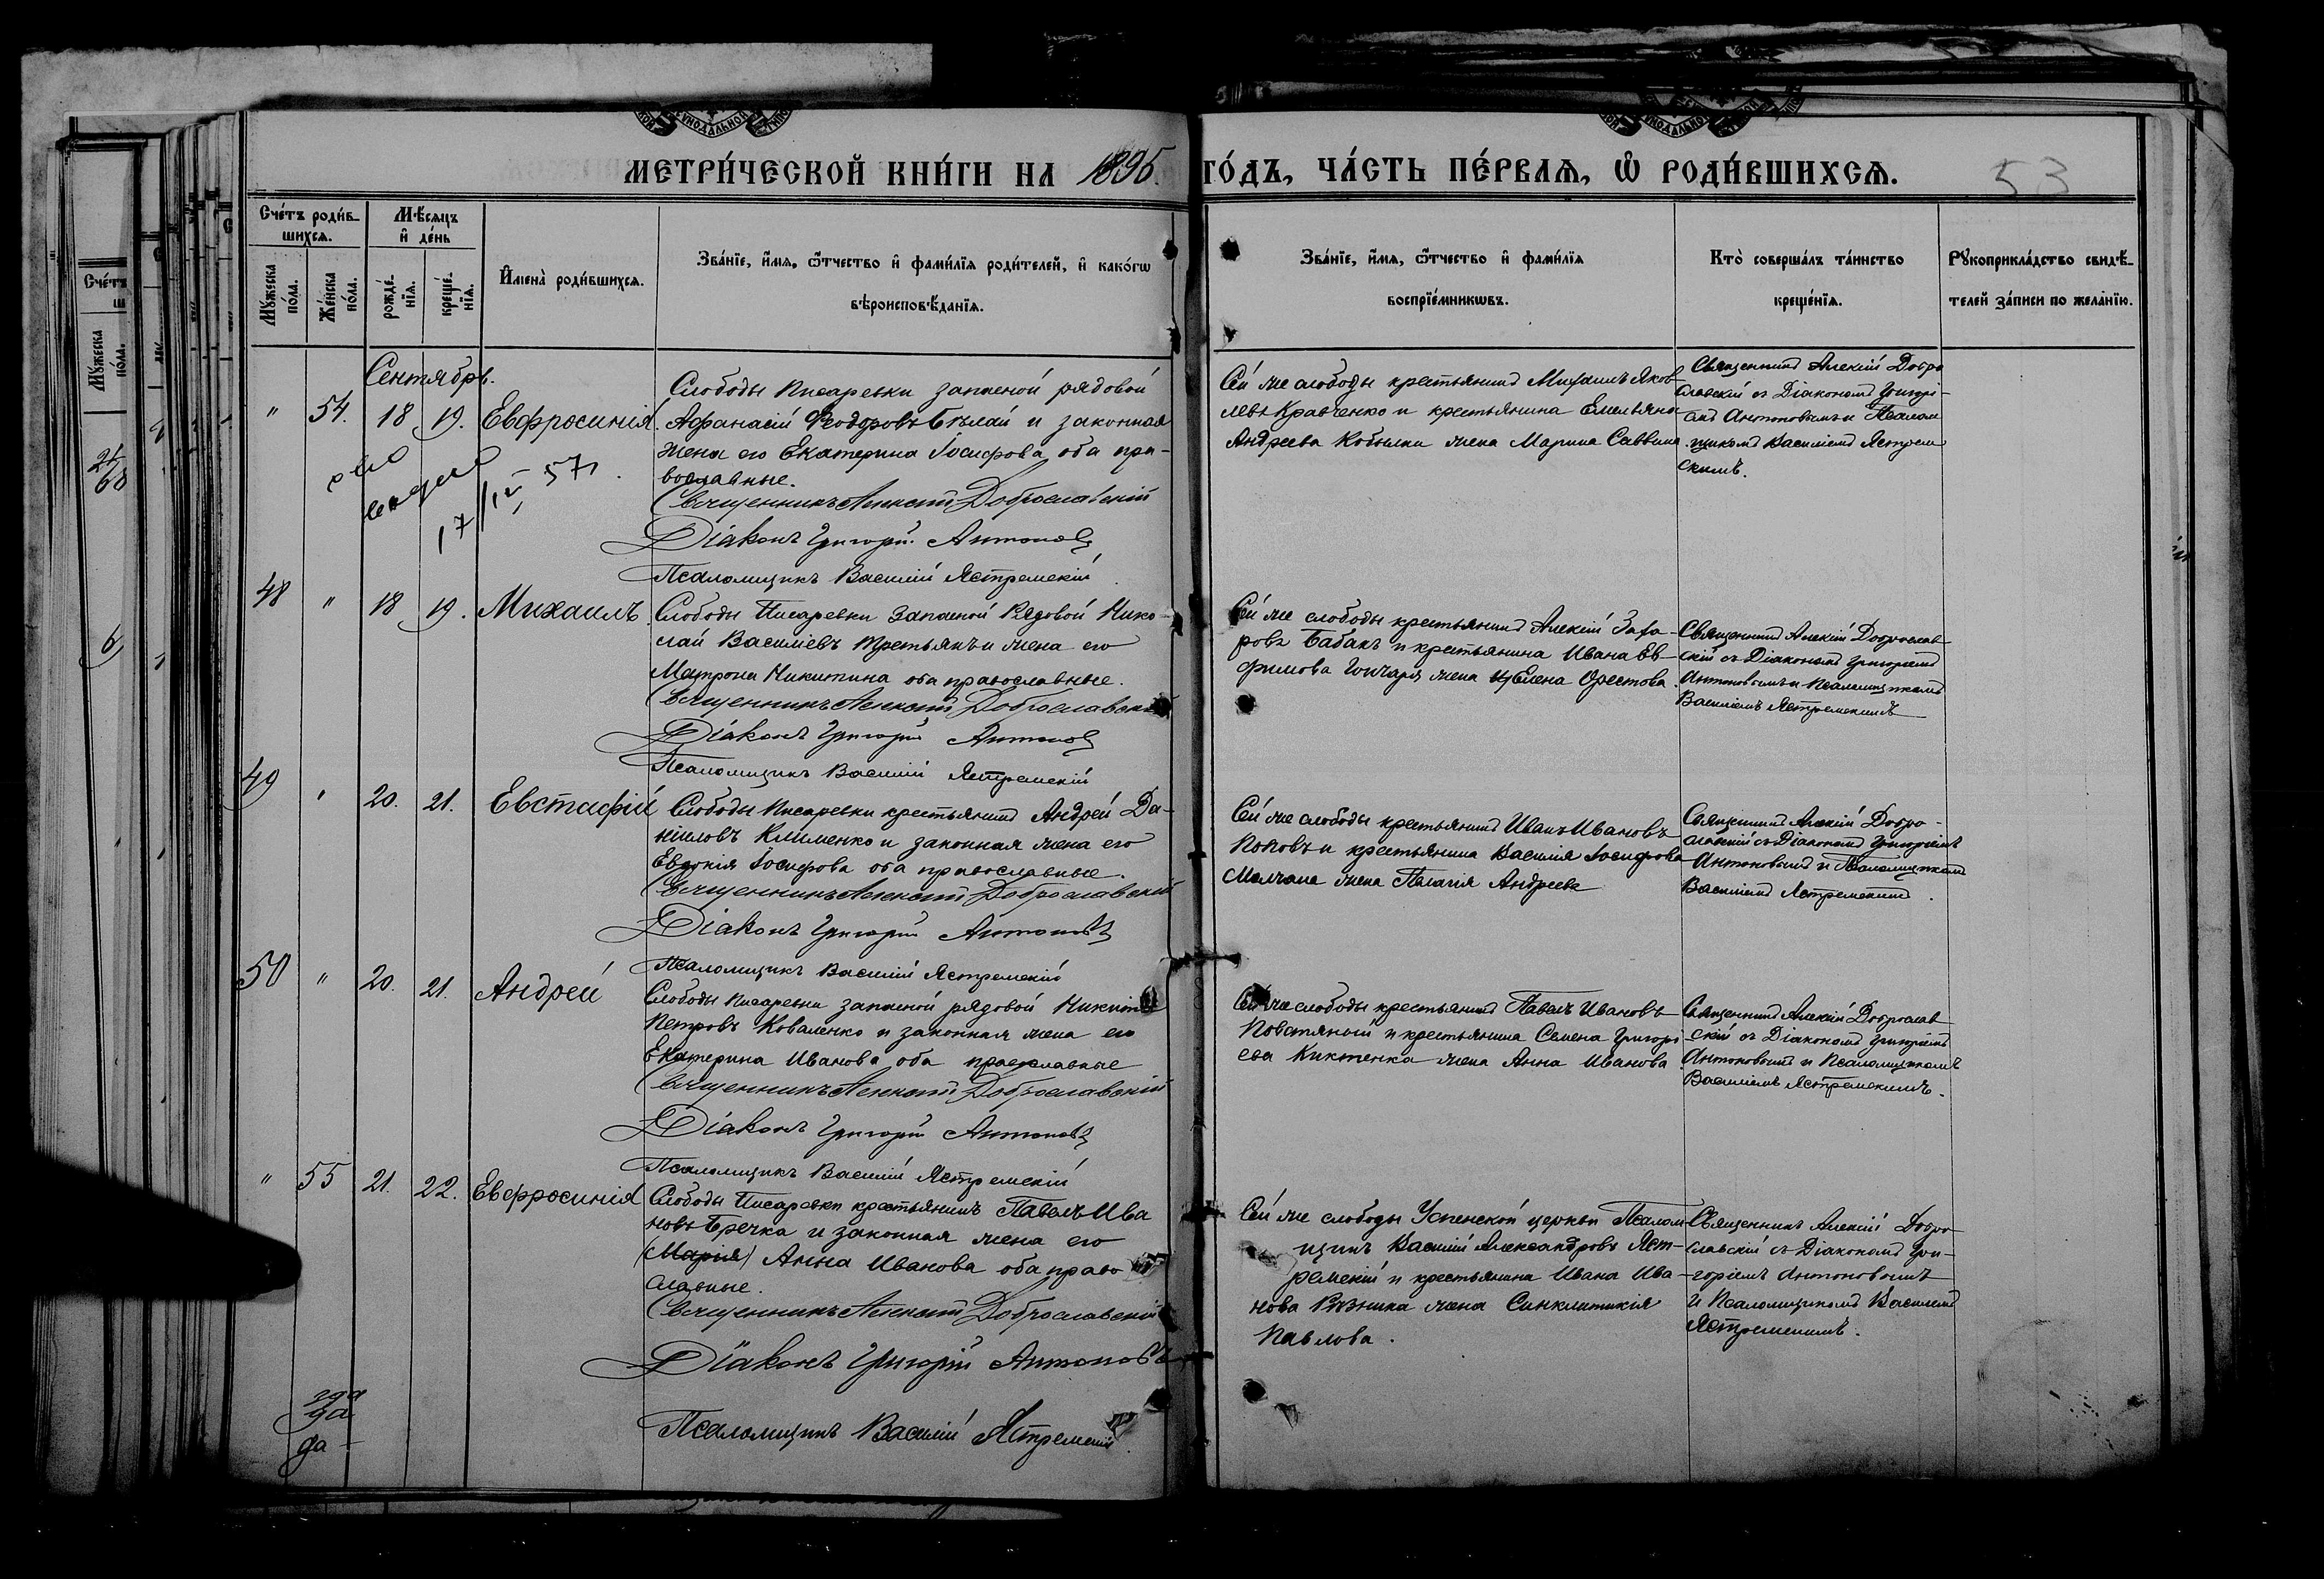 МЕТРИ́ЧЕСКОЙ КНИ́ГИ НА 1895.
ГО́ДЪ, ЧА́СТЬ ПЕ́РВАѦ, Ѡ҆ РОДИ́ВШИХСѦ.
53
Сче́тъ роди́в-
шихсѧ.
Мꙋ́жеска по́ла.
Же́нска по́ла.
Мѣ́сѧцъ
и҆ де́нь
рожде́-нїѧ.
креще́-нїѧ.
И҆мена̀ роди́вшихсѧ.
Зва́нїе, и҆́мѧ, ѻ҆́тчество и҆ фами́лїѧ роди́телей, и҆ како́гѡ
вѣроисповѣ́данїѧ.
Зва́нїе, и҆́мѧ, ѻ҆́тчество и҆ фами́лїѧ
воспрїе́мникѡвъ.
Кто̀ соверша́лъ та́инство
креще́нїѧ.
Рꙋкоприкла́дство свидѣ́-
телей за́писи по жела́нїю.
Сентябрь.
" 54. 18 19. Евфросинія
Слободы Писаревки запасной рядовой
Афанасій Ѳеодоровъ Бѣлай и законная
жена его Екатерина Іосифова, оба пра-
вославные.
Священникъ Алексій Доброславскій
Діаконъ Григорій Антоновъ
Псаломщикъ Василій Ястремскій
Сей же слободы крестьянинъ Михаилъ Яков-
левъ Кравченко и крестьянина Емельяна
Андреева Кобылки жена Марина Саввина.
Священникъ Алексій Добро
славскій съ Діакономъ Григорі-
емъ Антоновымъ и Псалом
щикомъ Василіемъ Ястрем
скимъ.
17/IV 57
48 " 18 19. Михаилъ
Слободы Писаревки запасной Рядовой Нико-
лай Василіевъ Третьякъ и жена его
Матрона Никитина оба православные.
Священникъ Алексій Доброславскій
Діаконъ Григорій Антоновъ
Псаломщикъ Василій Ястремскій
Сей же слободы крестьянинъ Алексій Заха-
ровъ Бабакъ и крестьянина Ивана Ев-
фимова Гончаря жена Елена Орестова.
Священникъ Алексій Доброслав-
скій съ Діакономъ Григоріемъ
Антоновымъ и Псаломщикомъ
Василіемъ Ястремскимъ
49 " 20. 21. Евстафій
Слободы Писаревки крестьянинъ Андрей Да-
ніиловъ Клименко и законная жена его
Евдокія Іосифова оба православные.
Священникъ Алексій Доброславскій
Діаконъ Григорій Антоновъ
Псаломщикъ Василій Ястремскій
Сей же слободы крестьянинъ Иванъ Ивановъ
Поповъ и крестьянина Василія Іосифова
Малчана жена Палагія Андреева
Священникъ Алексій Добро-
славскій съ Діакономъ Григоріемъ
Антоновымъ и Псаломщикомъ
Василіемъ Ястремскимъ.
50 " 20. 21. Андрей
Слободы Писаревки запасной рядовой Никита
Петровъ Коваленко и законная жена его
Екатерина Иванова оба православные
Священникъ Алексій Доброславскій
Діаконъ Григорій Антоновъ
Псаломщикъ Василій Ястремскій
Сей же слободы крестьянинъ Павелъ Ивановъ
Повстяной и крестьянина Семена Григорі
ева Киктенка жена Анна Иванова
Священникъ Алексій Доброслав
скій съ Діакономъ Григоріемъ
Антоновымъ и Псаломщикомъ
Василіемъ Ястремскимъ.
" 55 21. 22. Евфросинія
Слободы Писаревки крестьянинъ Павелъ Ива
новъ Бречка и законная жена его
(Марія) Анна Иванова оба право
славные.
Священникъ Алексій Доброславскій
Діаконъ Григорій Антоновъ
Псаломщикъ Василій Ястремскій
Сей же слободы Успенской церкви Псалом
щикъ Василій Александровъ Яст-
ремскій и крестьянина Ивана Ива-
нова Рѣзника жена Синклитикія
Павлова.
Священникъ Алексій Добро-
славскій съ Діакономъ Гри-
горіемъ Антоновымъ
и Псаломщикомъ Василіемъ
Ястремскимъ.